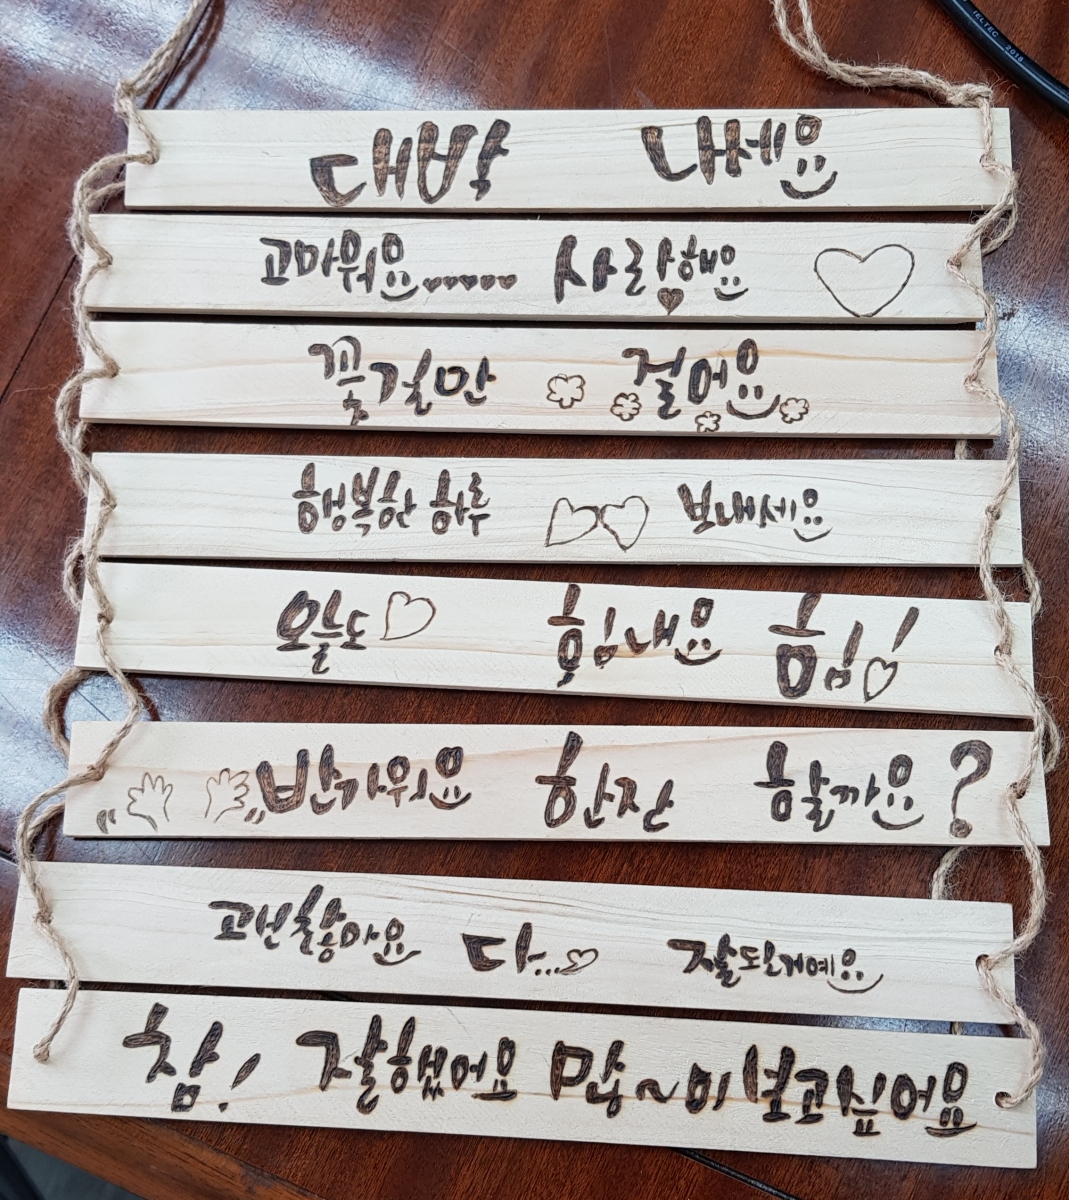 IELTEC 2018
대박 나세요
고마워요...... 사랑해요
꽃길만 걸어요
행복한 하루 보내세요
오늘도 힘내요 힘!
반가워요 한잔 할까요?
괜찮아요 다... 잘될거예요
참! 잘했어요 많~이 보고싶어요